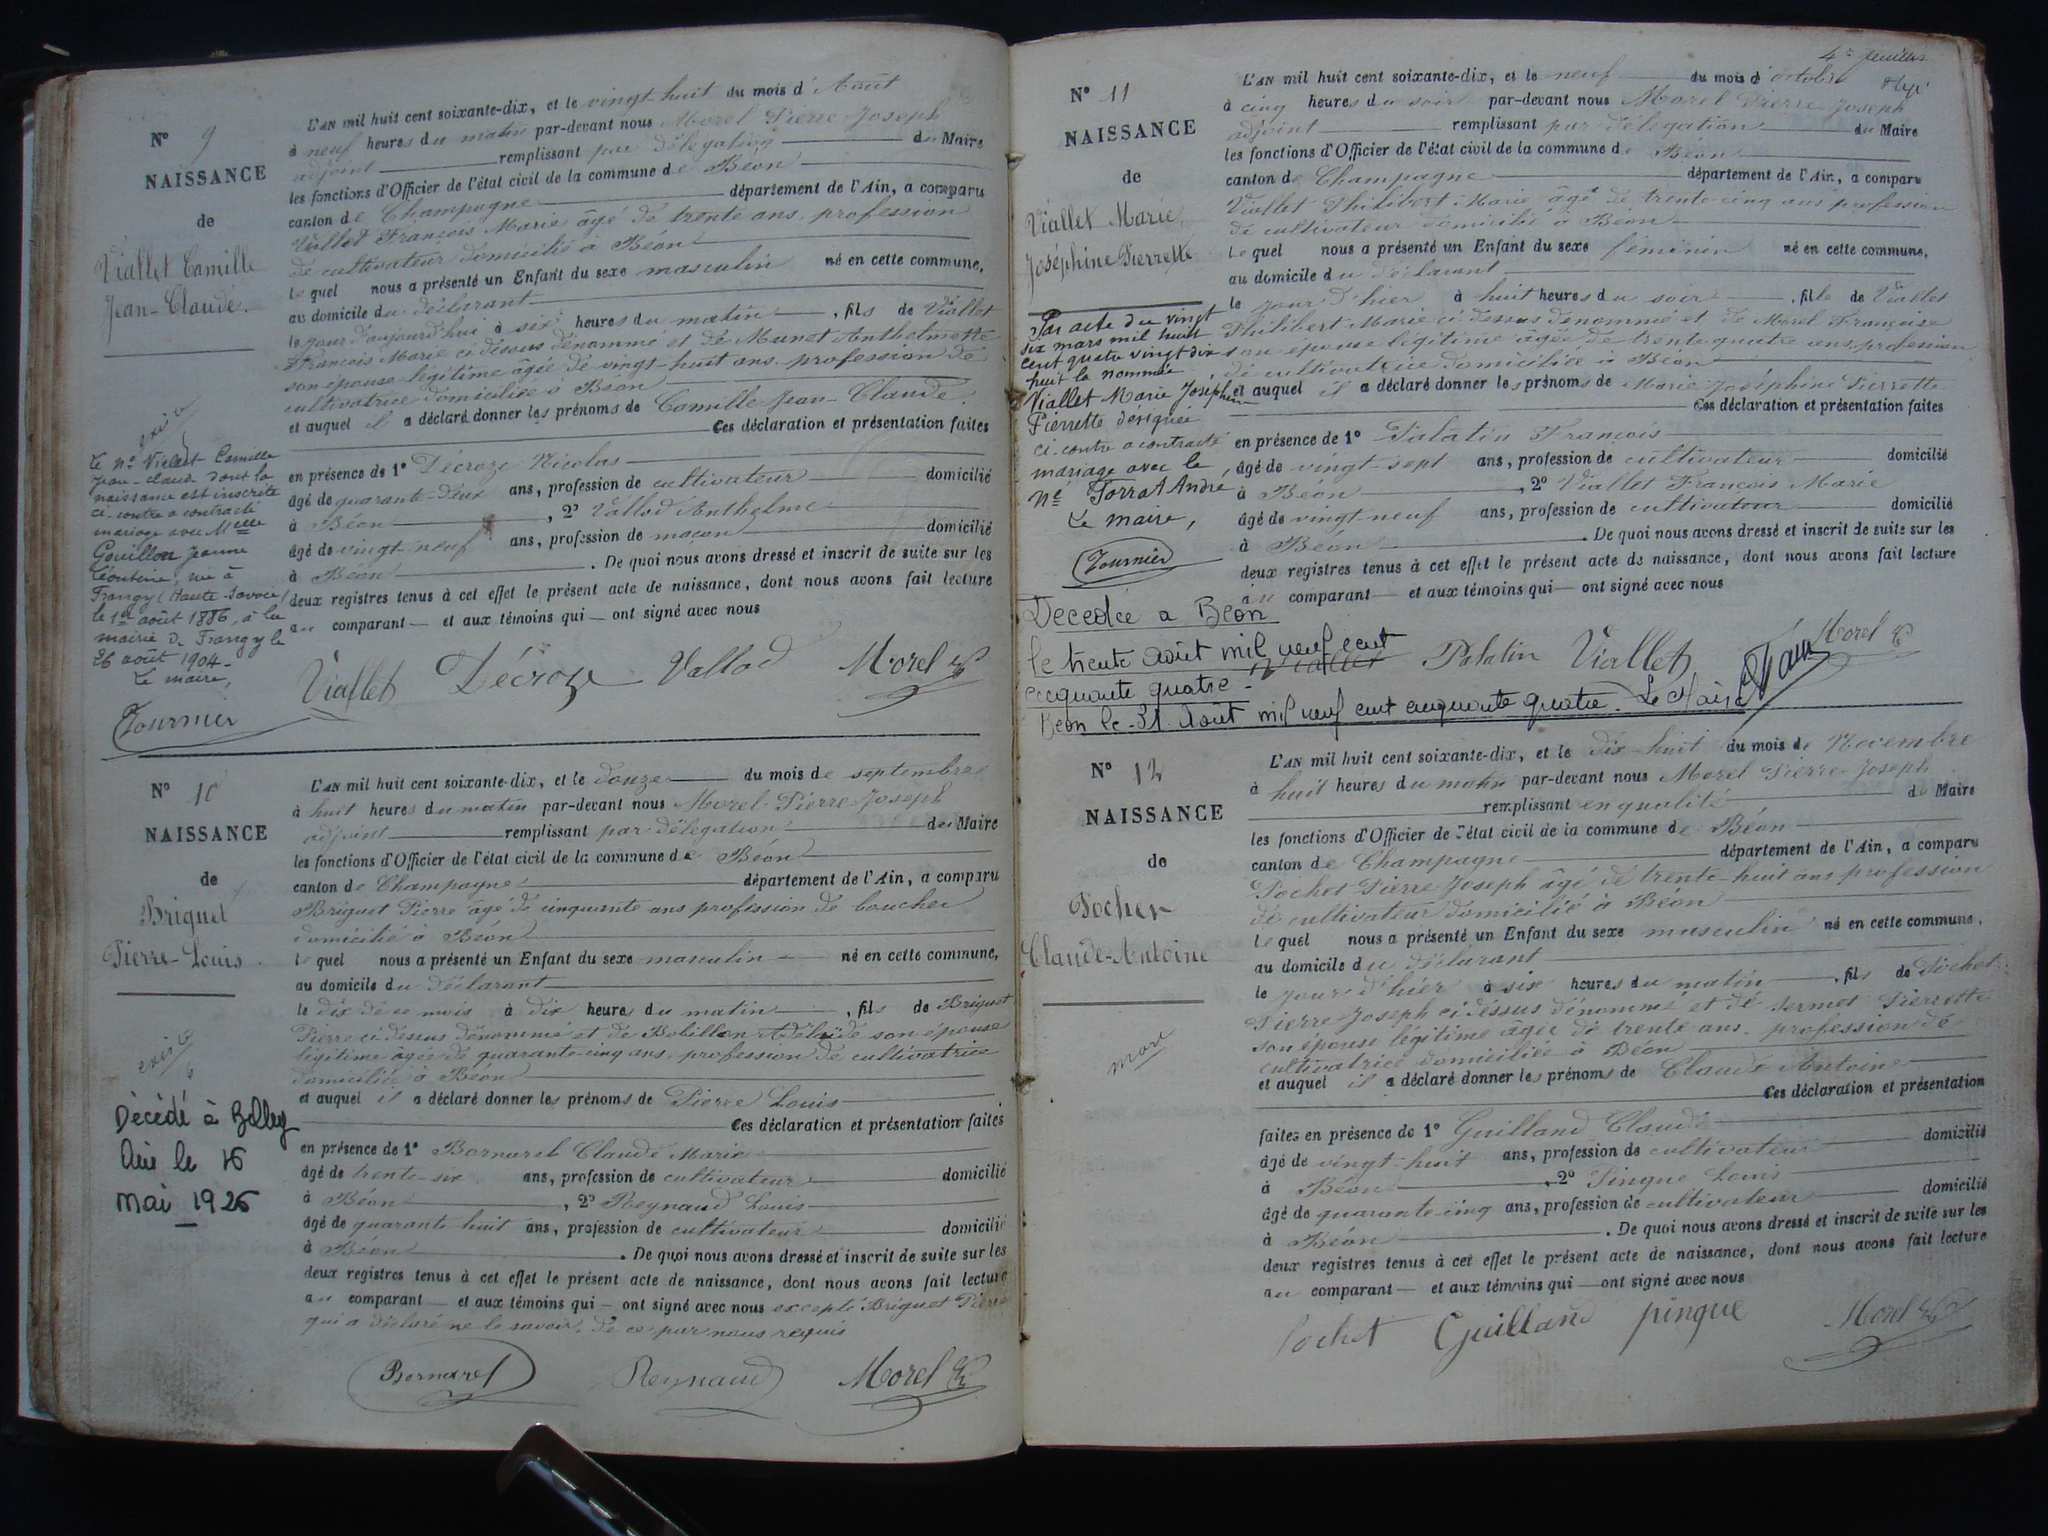 N° 9
NAISSANCE
de
Viallet Camille
Jean-Claude.
L'AN mil huit cent soixante-dix, et le vingt-huit du mois d'Août
à neuf heures du matin par-devant nous Morel Pierre-Joseph
adjoint remplissant par délégation du Maire
les fonctions d'Officier de l'état civil de la commune de Béon
canton de Champagne département de l'Ain, a comparu
Viallet François Marie âgé de trente ans profession
de cultivateur domicilié à Béon
lequel nous a présenté un Enfant du sexe masculin né en cette commune,
au domicile du déclarant
le jour d'aujourd'hui à six heures du matin, fils de Viallet
François Marie ci dessus dénommé et de Munet Anthelmette
son épouse légitime âgée de vingt-huit ans profession de
cultivatrice domiciliée à Béon
et auquel il a déclaré donner les prénoms de Camille Jean-Claude.
Ces déclaration et présentation faites
en présence de 1° Décroze Nicolas
âgé de quarante-deux ans, profession de cultivateur domicilié
à Béon, 2° Vallod Anthelme
âgé de vingt-neuf ans, profession de maçon domicilié
à Béon. De quoi nous avons dressé et inscrit de suite sur les
deux registres tenus à cet effet le présent acte de naissance, dont nous avons fait lecture
au comparant et aux témoins qui ont signé avec nous
Viallet Décroze Vallod Morel
Le né Viallet Camille
Jean-Claude dont la
naissance est inscrite
ci-contre a contracté
mariage avec Melle
Gouillon Jeanne
Léontine, née à
Frangy (Haute-Savoie)
le 1er août 1886, à la
mairie de Frangy le
26 août 1904.
Le maire,
Tournier
N° 10
NAISSANCE
de
Briguet
Pierre-Louis.
L'AN mil huit cent soixante-dix, et le douze du mois de septembre
à huit heures du matin par-devant nous Morel Pierre-Joseph
adjoint remplissant par délégation du Maire
les fonctions d'Officier de l'état civil de la commune de Béon
canton de Champagne département de l'Ain, a comparu
Briguet Pierre âgé de cinquante ans profession de boucher
domicilié à Béon
lequel nous a présenté un Enfant du sexe masculin né en cette commune,
au domicile du déclarant
le dix de ce mois à dix heures du matin, fils de Briguet
Pierre ci dessus dénommé et de Bobillon Adélaïde son épouse
légitime âgée de quarante-cinq ans, profession de cultivatrice
domiciliée à Béon
et auquel il a déclaré donner les prénoms de Pierre Louis
Ces déclaration et présentation faites
en présence de 1° Bornarel Claude Marie
âgé de trente-six ans, profession de cultivateur domicilié
à Béon, 2° Reynaud Louis
âgé de quarante huit ans, profession de cultivateur domicilié
à Béon. De quoi nous avons dressé et inscrit de suite sur les
deux registres tenus à cet effet le présent acte de naissance, dont nous avons fait lecture
au comparant et aux témoins qui ont signé avec nous excepté Briguet Pierre
qui a déclaré ne le savoir, de ce par nous requis
Bornarel Reynaud Morel
Décédé à Belley
Ain le 16
mai 1926
N° 11
NAISSANCE
de
Viallet Marie
Joséphine Pierrette
L'AN mil huit cent soixante-dix, et le neuf du mois d'octobre
à cinq heures du soir par-devant nous Morel Pierre-Joseph
adjoint remplissant par délégation du Maire
les fonctions d'Officier de l'état civil de la commune de Béon
canton de Champagne département de l'Ain, a comparu
Viallet Philibert Marie âgé de trente-cinq ans profession
de cultivateur domicilié à Béon
lequel nous a présenté un Enfant du sexe féminin né en cette commune,
au domicile du déclarant
le jour d'hier à huit heures du soir, fille de Viallet
Philibert Marie ci dessus dénommé et de Morel Françoise
son épouse légitime âgée de trente-quatre ans, profession
de cultivatrice domiciliée à Béon
et auquel il a déclaré donner les prénoms de Marie Joséphine Pierrette
Ces déclaration et présentation faites
en présence de 1° Palatin François
âgé de vingt-sept ans, profession de cultivateur domicilié
à Béon, 2° Viallet François Marie
âgé de vingt-neuf ans, profession de cultivateur domicilié
à Béon. De quoi nous avons dressé et inscrit de suite sur les
deux registres tenus à cet effet le présent acte de naissance, dont nous avons fait lecture
au comparant et aux témoins qui ont signé avec nous
Viallet Palatin Viallet Morel
Par acte du vingt
six mars mil huit
cent quatre vingt dix
huit la nommée
Viallet Marie Joséphine
Pierrette désignée
ci-contre a contracté
mariage avec le
né Torrat André
Le maire,
Tournier
Décédée a Béon
le trente août mil neuf cent
cinquante quatre.
Béon le 31 août mil neuf cent cinquante quatre. Le Maire
N° 12
NAISSANCE
de
Pochet
Claude-Antoine
mort
L'AN mil huit cent soixante-dix, et le dix-huit du mois de Novembre
à huit heures du matin par-devant nous Morel Pierre-Joseph
remplissant en qualité de Maire
les fonctions d'Officier de l'état civil de la commune de Béon
canton de Champagne département de l'Ain, a comparu
Pochet Pierre Joseph âgé de trente-huit ans profession
de cultivateur domicilié à Béon
lequel nous a présenté un Enfant du sexe masculin né en cette commune,
au domicile du déclarant
le jour d'hier à six heures du matin, fils de Pochet
Pierre-Joseph ci dessus dénommé et de Sermet Pierrette
son épouse légitime âgée de trente ans profession de
cultivatrice domiciliée à Béon
et auquel il a déclaré donner les prénoms de Claude Antoine
Ces déclaration et présentation
faites en présence de 1° Guilland Claude
âgé de vingt-huit ans, profession de cultivateur domicilié
à Béon, 2° Pingue Louis
âgé de quarante-cinq ans, profession de cultivateur domicilié
à Béon. De quoi nous avons dressé et inscrit de suite sur les
deux registres tenus à cet effet le présent acte de naissance, dont nous avons fait lecture
au comparant et aux témoins qui ont signé avec nous
Pochet Guilland pingue Morel